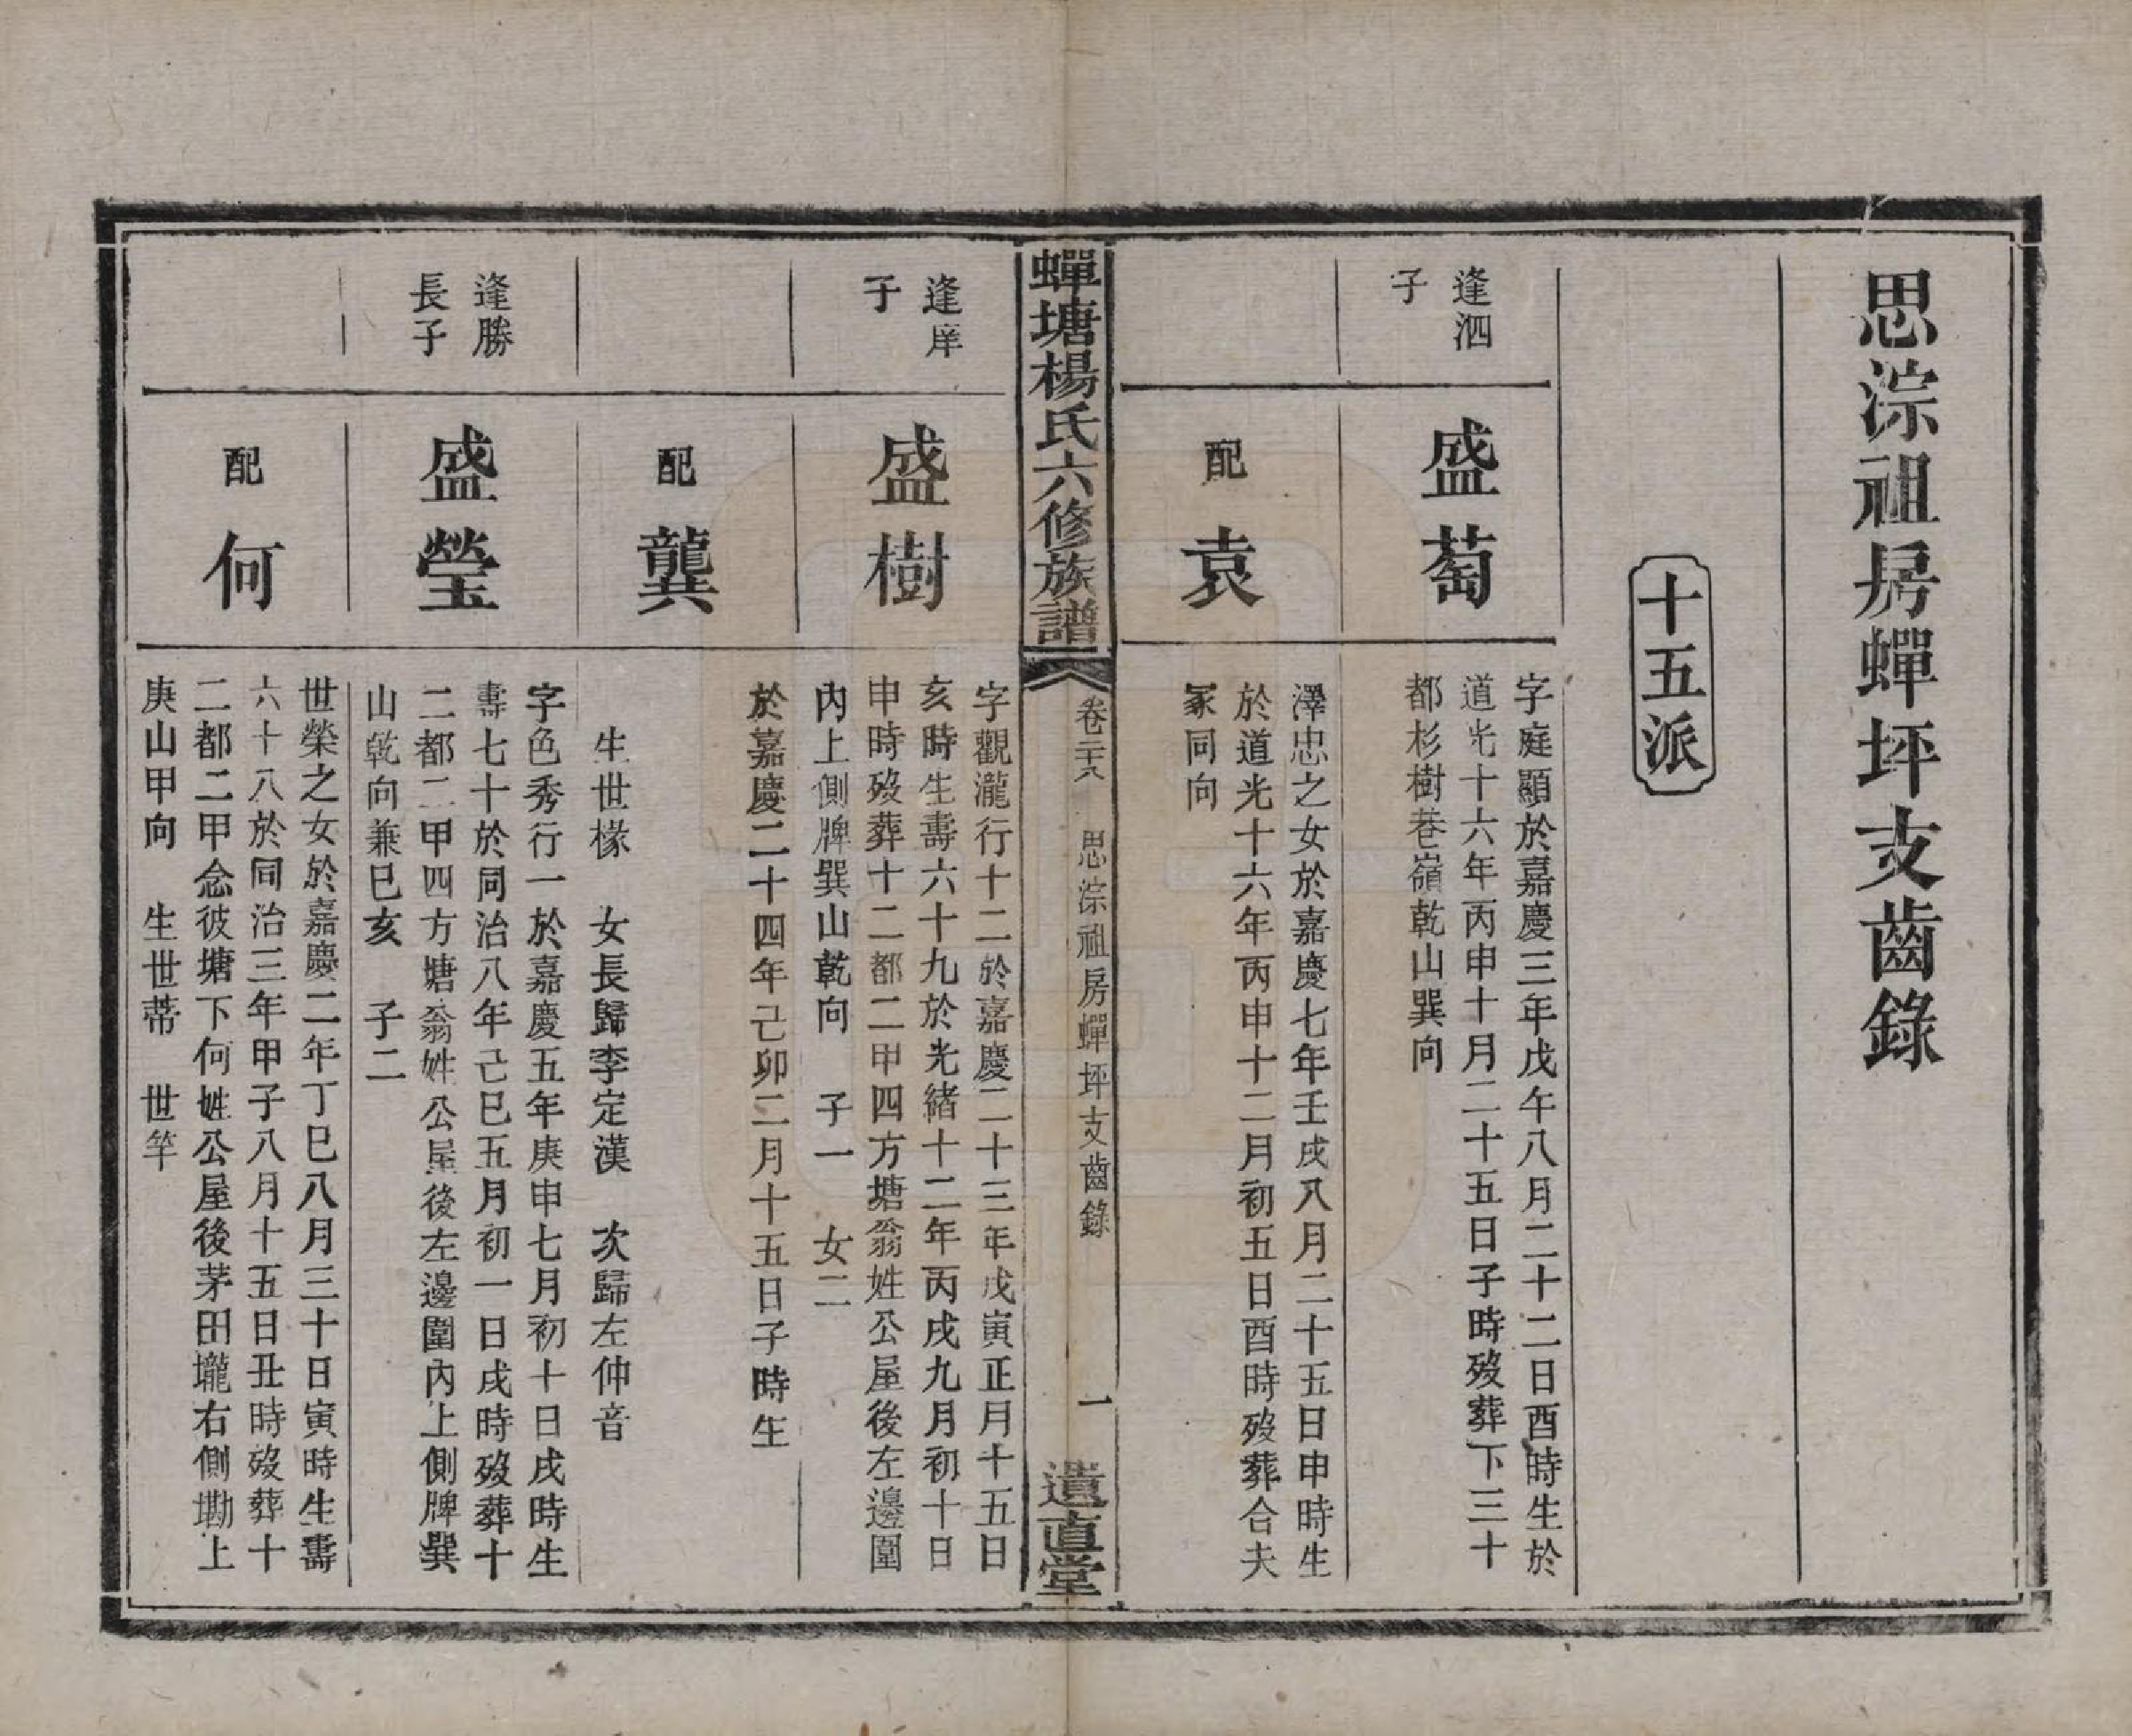 思淙祖房蟬坪支齒錄
十五派
逢泗
子
盛萄
字庭顯於嘉慶三年戊午八月二十二日酉時生於
道光十六年丙申十月二十五日子時歿葬下三十
都杉樹巷嶺乾山巽向
配袁
澤忠之女於嘉慶七年壬戌八月二十五日申時生
於道光十六年丙申十二月初五日酉時歿葬合夫
冢同向
蟬塘楊氏六修族譜
卷三十八
思淙祖房蟬坪支齒錄
一
遺直堂
逢庠
子
盛樹
字觀瀧行十二於嘉慶二十三年戊寅正月十五日
亥時生壽六十九於光緒十二年丙戌九月初十日
申時歿葬十二都二甲四方塘翁姓公屋後左邊圍
內上側牌巽山乾向 子一 女二
配龔
於嘉慶二十四年己卯二月十五日子時生
生世椽 女長歸李定漢 次歸左仲音
逢勝
長子
盛瑩
字色秀行一於嘉慶五年庚申七月初十日戌時生
壽七十於同治八年己巳五月初一日戌時歿葬十
二都二甲四方塘翁姓公屋後左邊圍內上側牌巽
山乾向兼巳亥 子二
配何
世榮之女於嘉慶二年丁巳八月三十日寅時生壽
六十八於同治三年甲子八月十五日丑時歿葬十
二都二甲念彼塘下何姓公屋後茅田壠右側墈上
庚山甲向 生世蒂 世竿